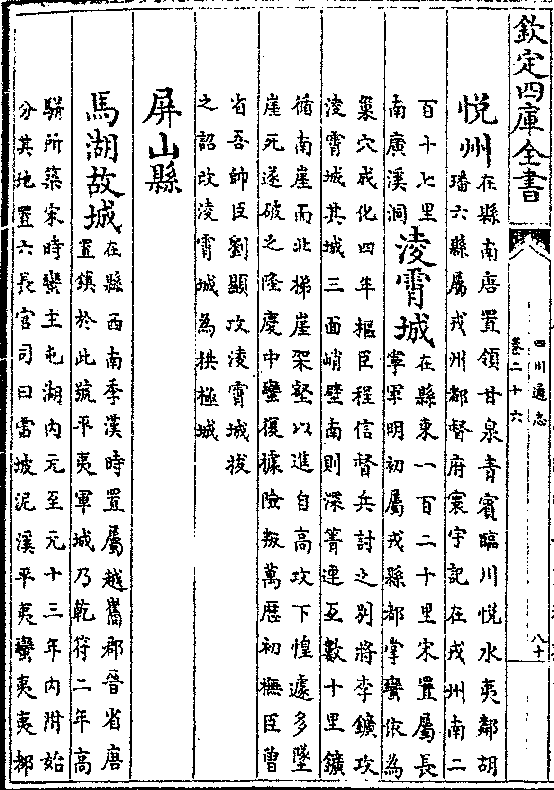 欽定四庫全書
四川通志
卷二十六
八十
悦州
在縣南唐置領甘泉青賓臨川悦水夷鄰胡
璠六縣屬戎州都督府寰宇記在戎州南二
百十七里
南廣溪洞
淩霄城
在縣東一百二十里宋置屬長
寧軍明初屬戎縣都掌蠻依為
巢穴成化四年樞臣程信督兵討之别將李鑛攻
淩霄城其城三面峭壁南則深箐連亙數十里鑛
循南崖而北梯崖架壑以進自高攻下惶遽多墜
崖死遂破之隆慶中蠻復據險叛萬歴初撫臣曾
省吾帥臣劉顯攻淩霄城拔
之詔改淩霄城為拱極城
屏山縣
馬湖故城
在縣西南季漢時置屬越巂郡晉省唐
置鎮於此號平夷軍城乃乾符二年高
駢所築宋時蠻主屯湖内元至元十三年内附始
分其地置六長官司曰雷坡泥溪平夷蠻夷夷都